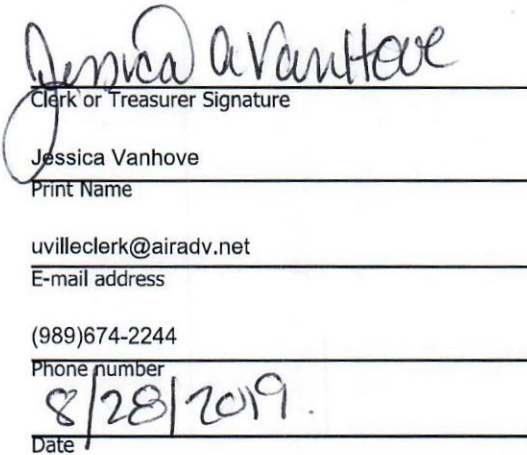 Jessica A VanHove
Clerk or Treasurer Signature
Jessica Vanhove
Print Name
uvilleclerk@airadv.net
E-mail address
(989)674-2244
Phone number
8/28/2019.
Date